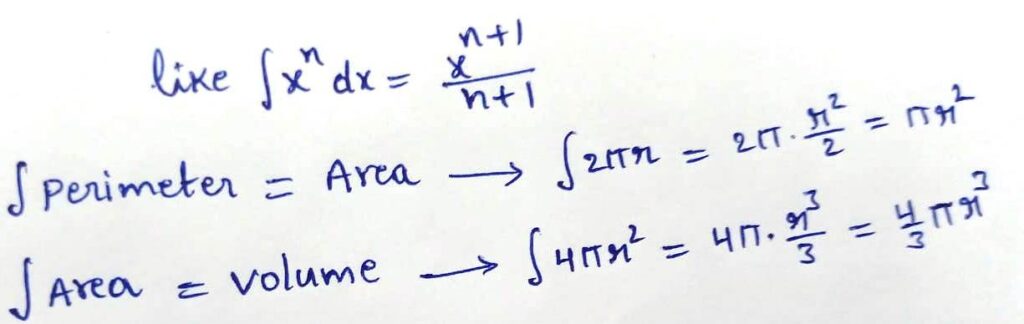 like ∫xⁿ dx = xⁿ⁺¹/n+1
∫ perimeter = Area → ∫2πr = 2π · r²/2 = πr²
∫ Area = volume → ∫4πr² = 4π · r³/3 = 4/3 πr³